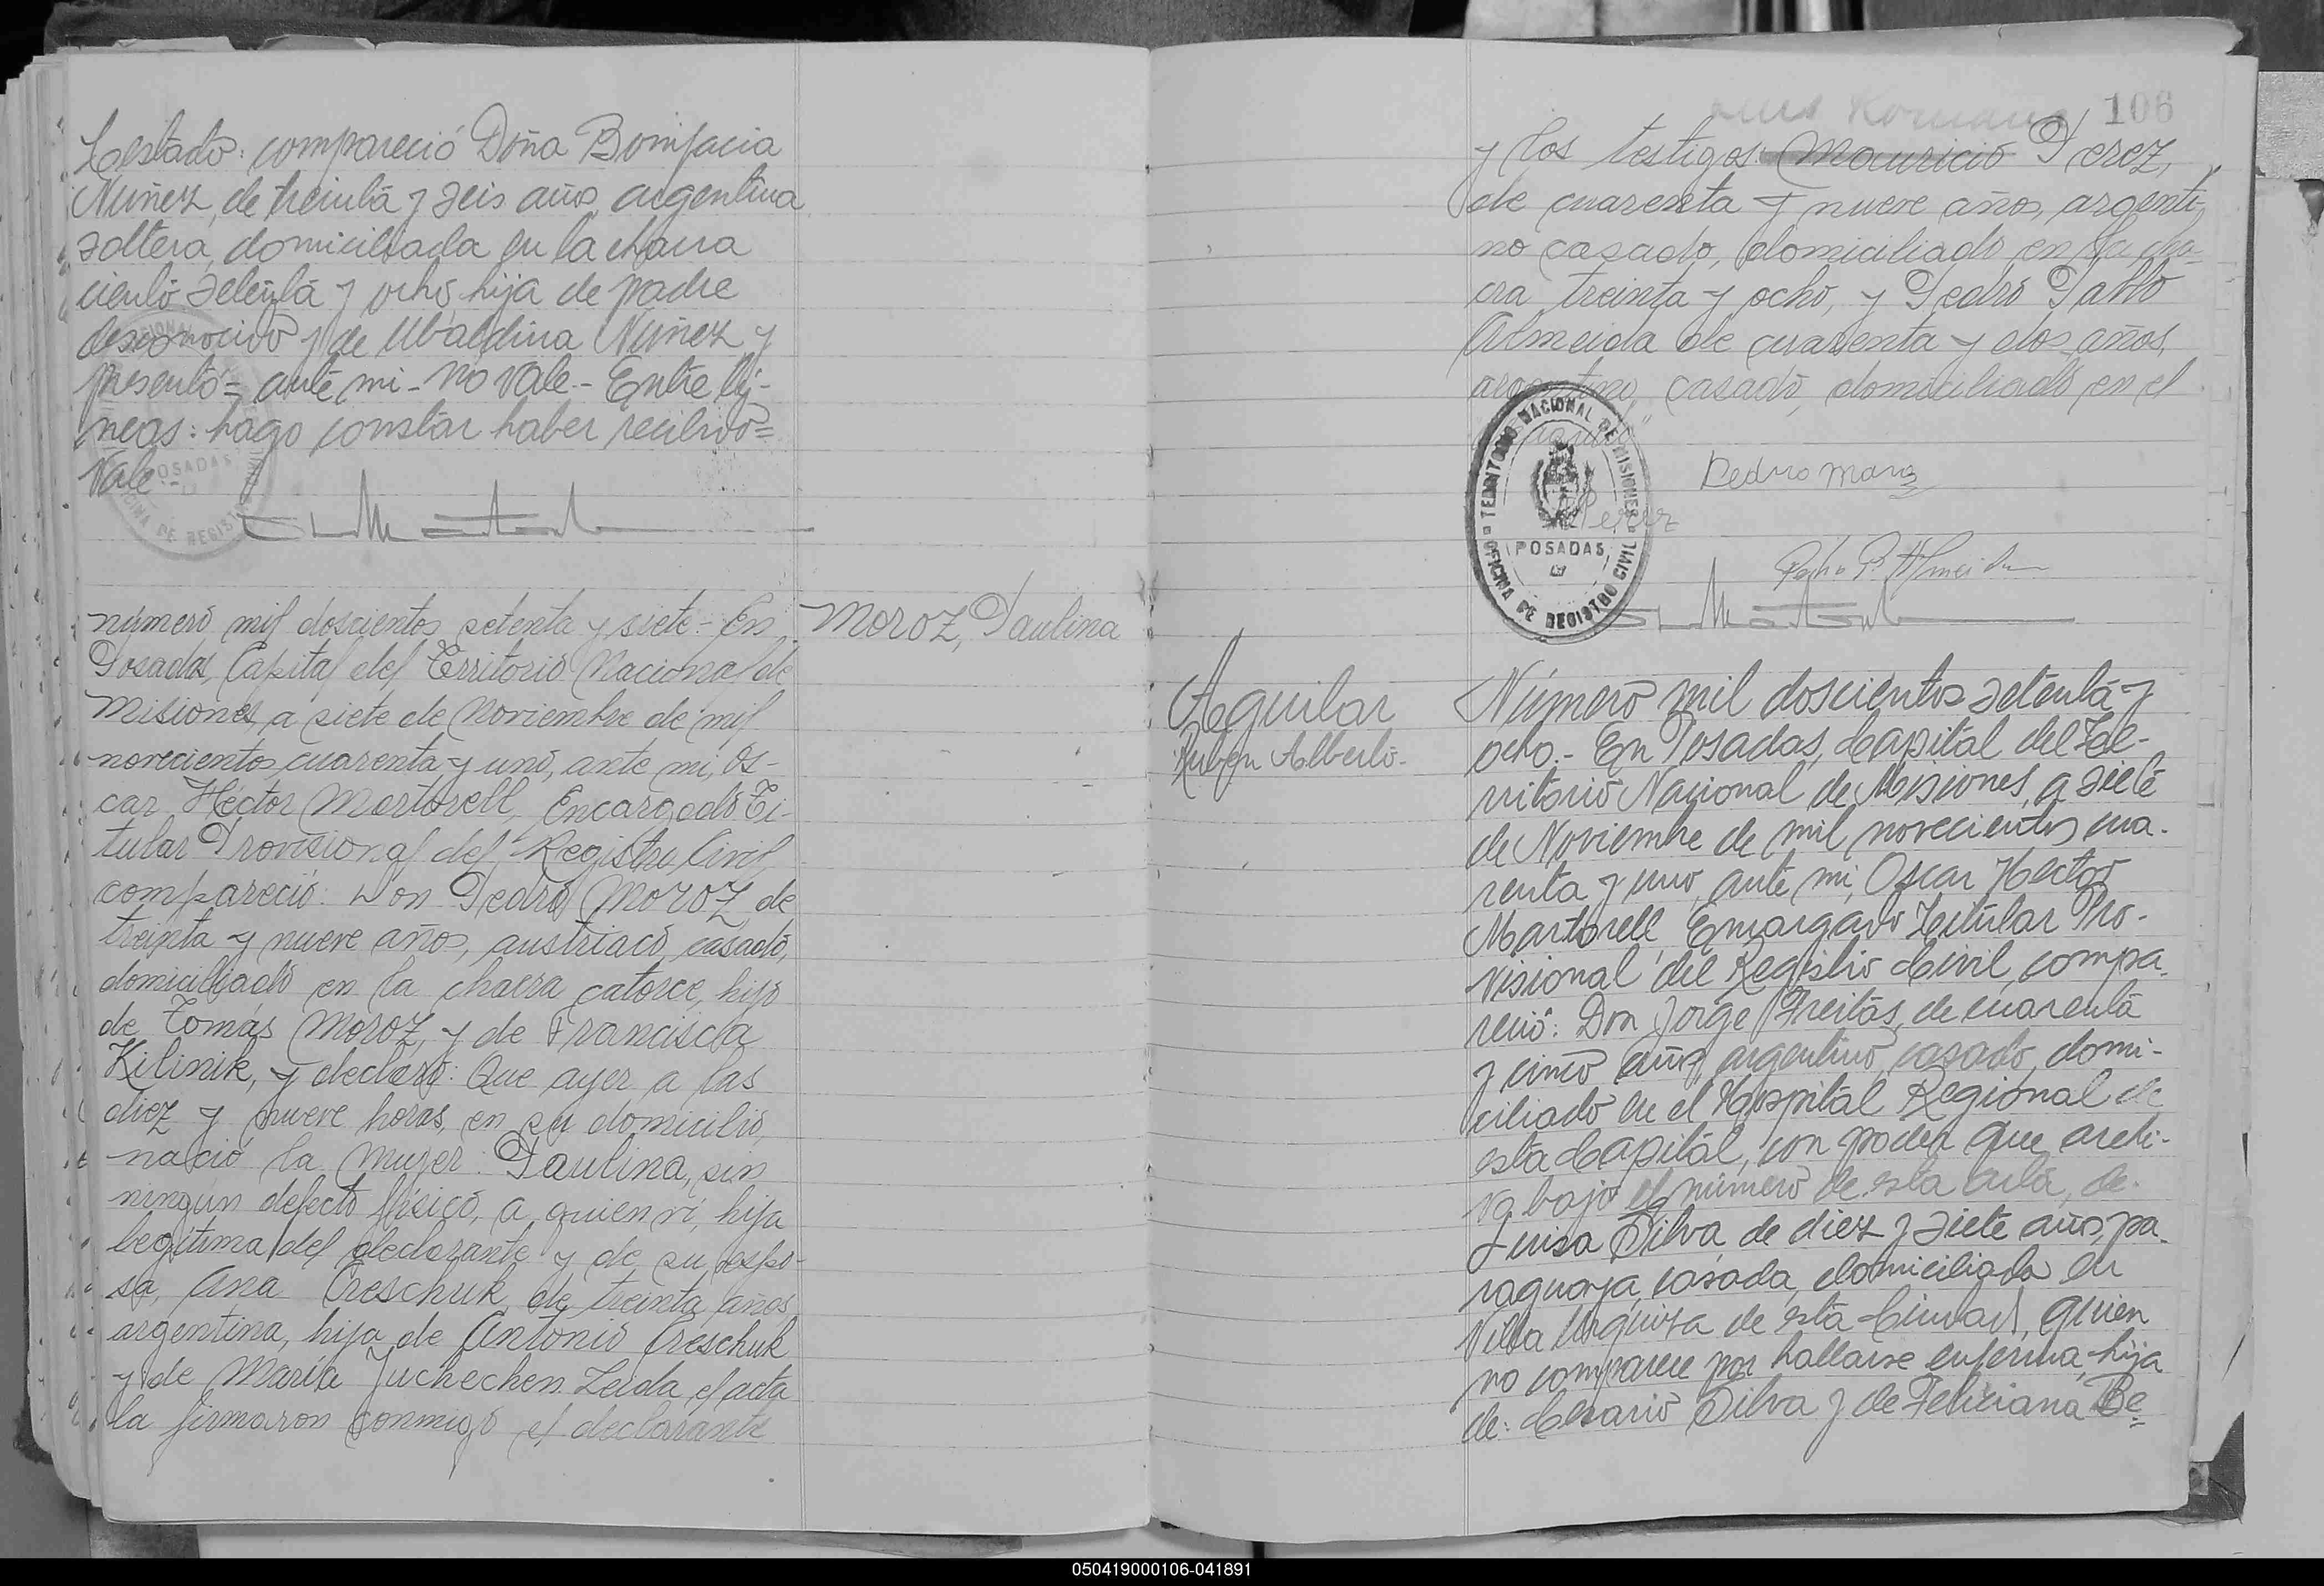 Testado: compareció Doña Bonifacia
Nuñez, de treinta y seis años, argentina
soltera, domiciliada en la chacra
ciento setenta y ocho, hija de padre
desconocido y de Ubaldina Nuñez y
presentó = ante mi - no vale - Entre lí-
neas: hago constar haber recibido =
Vale -
número mil doscientos setenta y siete - En
Posadas, Capital del Territorio Nacional de
Misiones, a siete de Noviembre de mil
novecientos cuarenta y uno, ante mi, Os-
car Héctor Martorell, Encargado Ti-
tular Provisional del Registro Civil,
compareció: Don Pedro Moroz, de
treinta y nueve años, austriaco, casado,
domiciliado en la chacra catorce, hijo
de Tomás Moroz, y de Francisca
Kilinik, y declaró: Que ayer a las
diez y nueve horas, en su domicilio,
nació la mujer: Paulina, sin
ningún defecto físico, a quien ví, hija
legítima del declarante y de su espo-
sa, Ana Creschuk, de treinta años,
argentina, hija de Antonio Creschuk
y de María Juchechen. Leída el acta
la firmaron conmigo el declarante
Moroz, Paulina
106
y los testigos: Mauricio Perez,
de cuarenta y nueve años, argenti-
no casado, domiciliado en la cha-
cra treinta y ocho, y Pedro Pablo
Almeida de cuarenta y dos años,
argentino, casado, domiciliado en el
TERRITORIO NACIONAL DE MISIONES
POSADAS
OFICINA DE REGISTRO CIVIL
Pedro Moroz
Perez
Pedro P. Almeida
Aguilar
Ruben Alberto-
Número mil doscientos setenta y
ocho.- En Posadas, Capital del Te-
rritorio Nacional de Misiones, a siete
de Noviembre de mil novecientos cua-
renta y uno, ante mi, Oscar Hector
Martorell, Encargado Titular Pro-
visional del Registro Civil, compa-
reció: Don Jorge Freitas, de cuarenta
y cinco años, argentino, casado, domi-
ciliado en el Hospital Regional de
esta Capital, con poder que archi-
va bajo el número de esta acta, de
Luisa Silva, de diez y siete años, pa-
raguaya, casada, domiciliada en
Villa Urquiza de esta Ciudad, quien
no comparece por hallarse enferma, hija
de: Cesario Silva y de Feliciana Be=
050419000106-041891